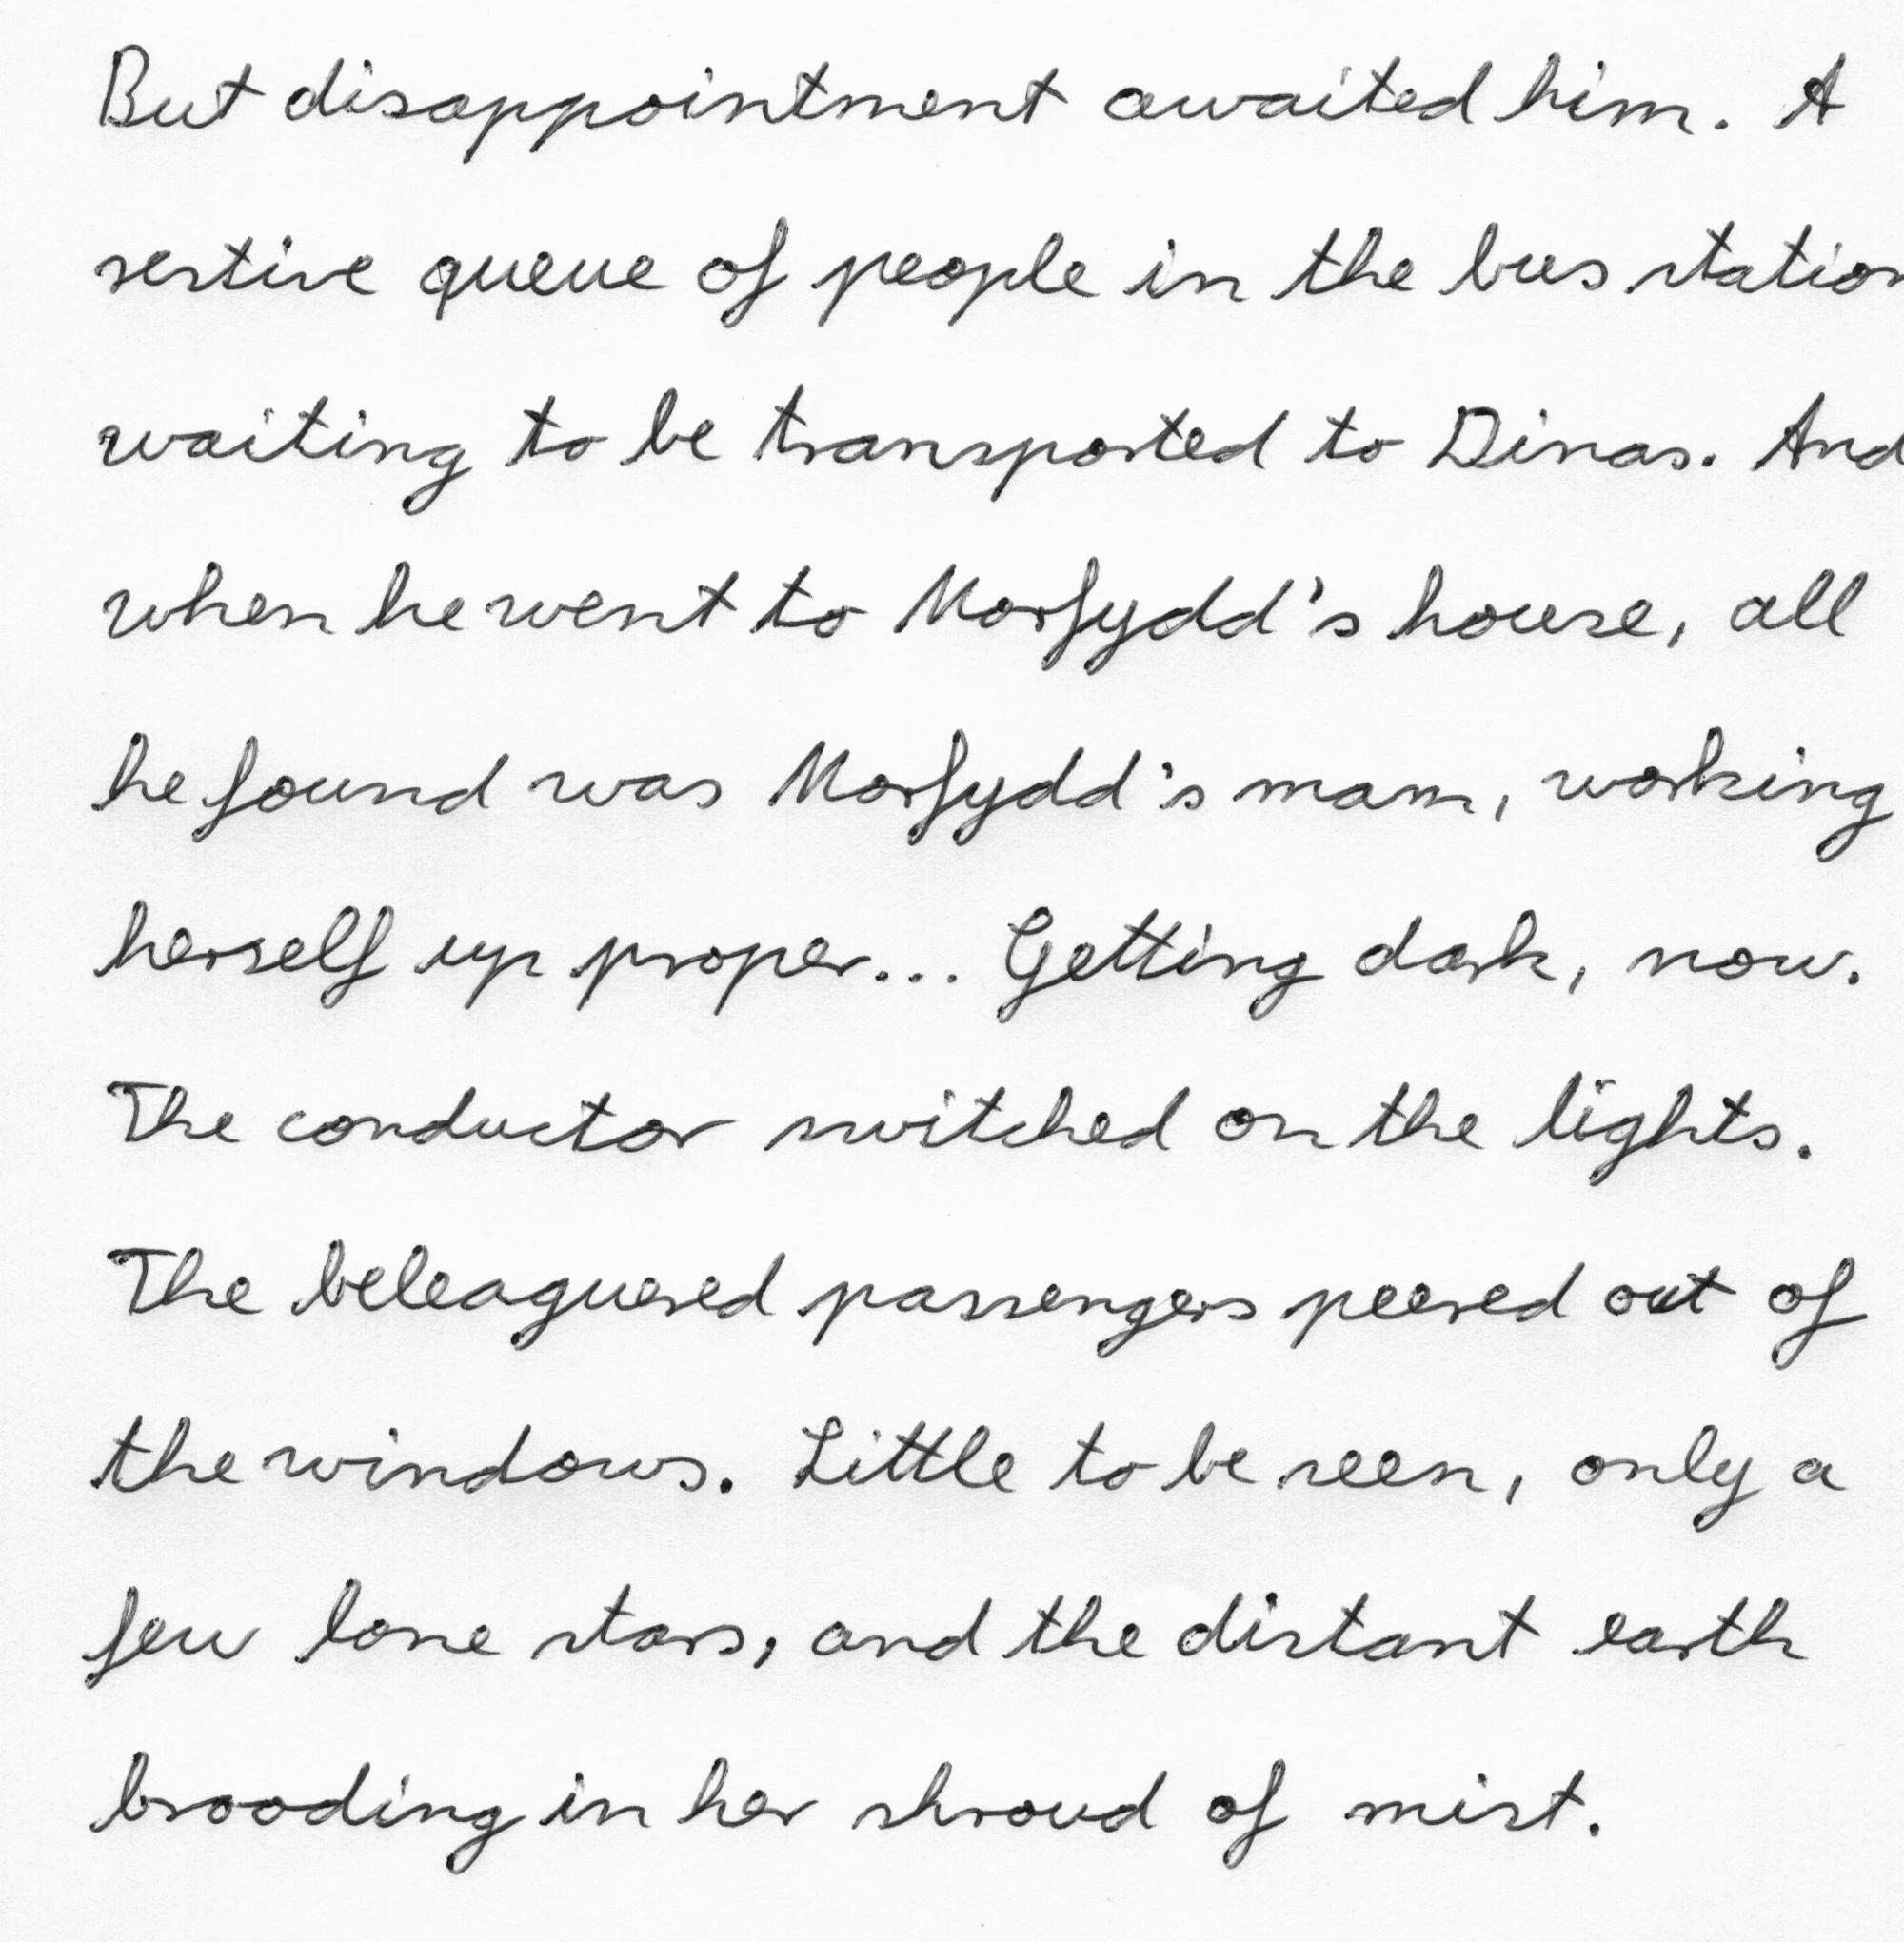 But disappointment awaited him. A
restive queue of people in the bus station
waiting to be transported to Dinas. And
when he went to Morfydd's house, all
he found was Morfydd's mam, working
herself up proper... Getting dark, now.
The conductor switched on the lights.
The beleaguered passengers peered out of
the windows. Little to be seen, only a
few lone stars, and the distant earth
brooding in her shroud of mist.